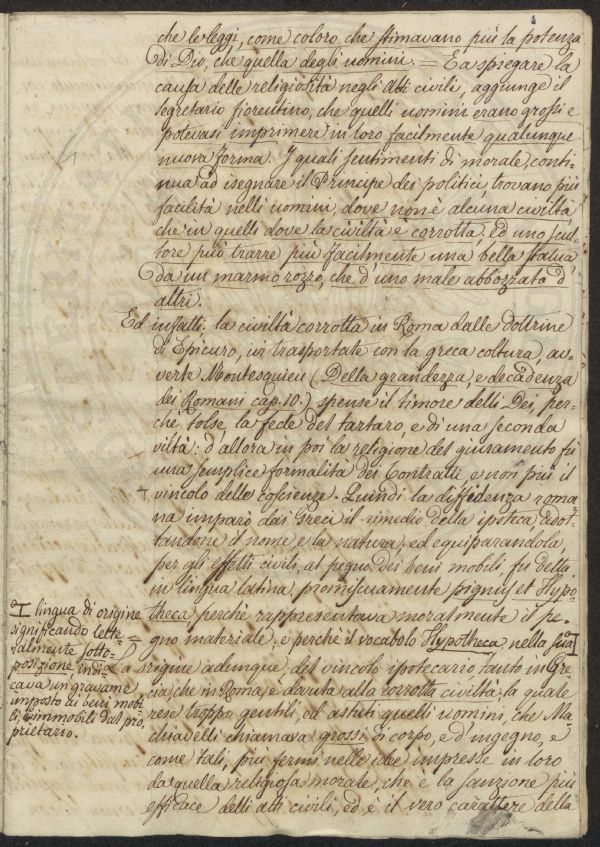 che le leggi, come coloro che stimavano più la potenza
di Dio, che quella degli uomini. = E a spiegare la
causa delle religiosità negli Atti civili, aggiunge il
segretario fiorentino, che quelli uomini erano grossi e
potevasi imprimere in loro facilmente qualunque
nuova forma. I quali sentimenti di morale, conti-
nua ad insegnare il Principe dei politici, trovano più
facilità nelli uomini, dove non è alcuna civiltà,
che in quelli dove la civiltà è corrotta, ed uno scul-
tore può trarre più facilmente una bella statua
da un marmo rozzo, che d'uno male abbozzato d'
altri.
Ed infatti, la civiltà corrotta in Roma dalle dottrine
di Epicuro, ivi trasportate con la greca coltura, av-
verte Montesquieu (Della grandezza, e decadenza
dei Romani cap. 10.) spense il timore delli Dei, per-
chè tolse la fede del tartaro, e di una seconda
viltà: d'allora in poi la religione del giuramento fù
una semplice formalità dei Contratti e non più il
vincolo delle coscienze. Quindi la diffidenza roma-
na imparò dai Greci il rimedio della ipoteca, adot-
tandone il nome, e la natura, ed equiparandola,
per gli effetti civili, al pegno dei beni mobili, fu detta
in lingua latina, promiscuamente pignus et Hypo-
theca, perchè rappresentava moralmente il pe-
gno materiale, e perchè il vocabolo Hypotheca, nella sua
L'origine adunque del vincolo ipotecario tanto in gre-
cia che in Roma, è dovuta alla corrotta civiltà, la quale
rese troppo gentili, ed astuti quelli uomini, che Ma-
chiavelli chiamava grossi di corpo, e d'ingegno, e
come tali, più fermi nelle idee impresse in loro
da quella religiosa morale, che è la sanzione più
efficace delli atti civili, ed è il vero carattere della
lingua di origine
significando lette-
ralmente sotto-
posizione, indi-
cava un gravame
imposto ai beni mobi-
li, e immobili dal pro-
prietario.